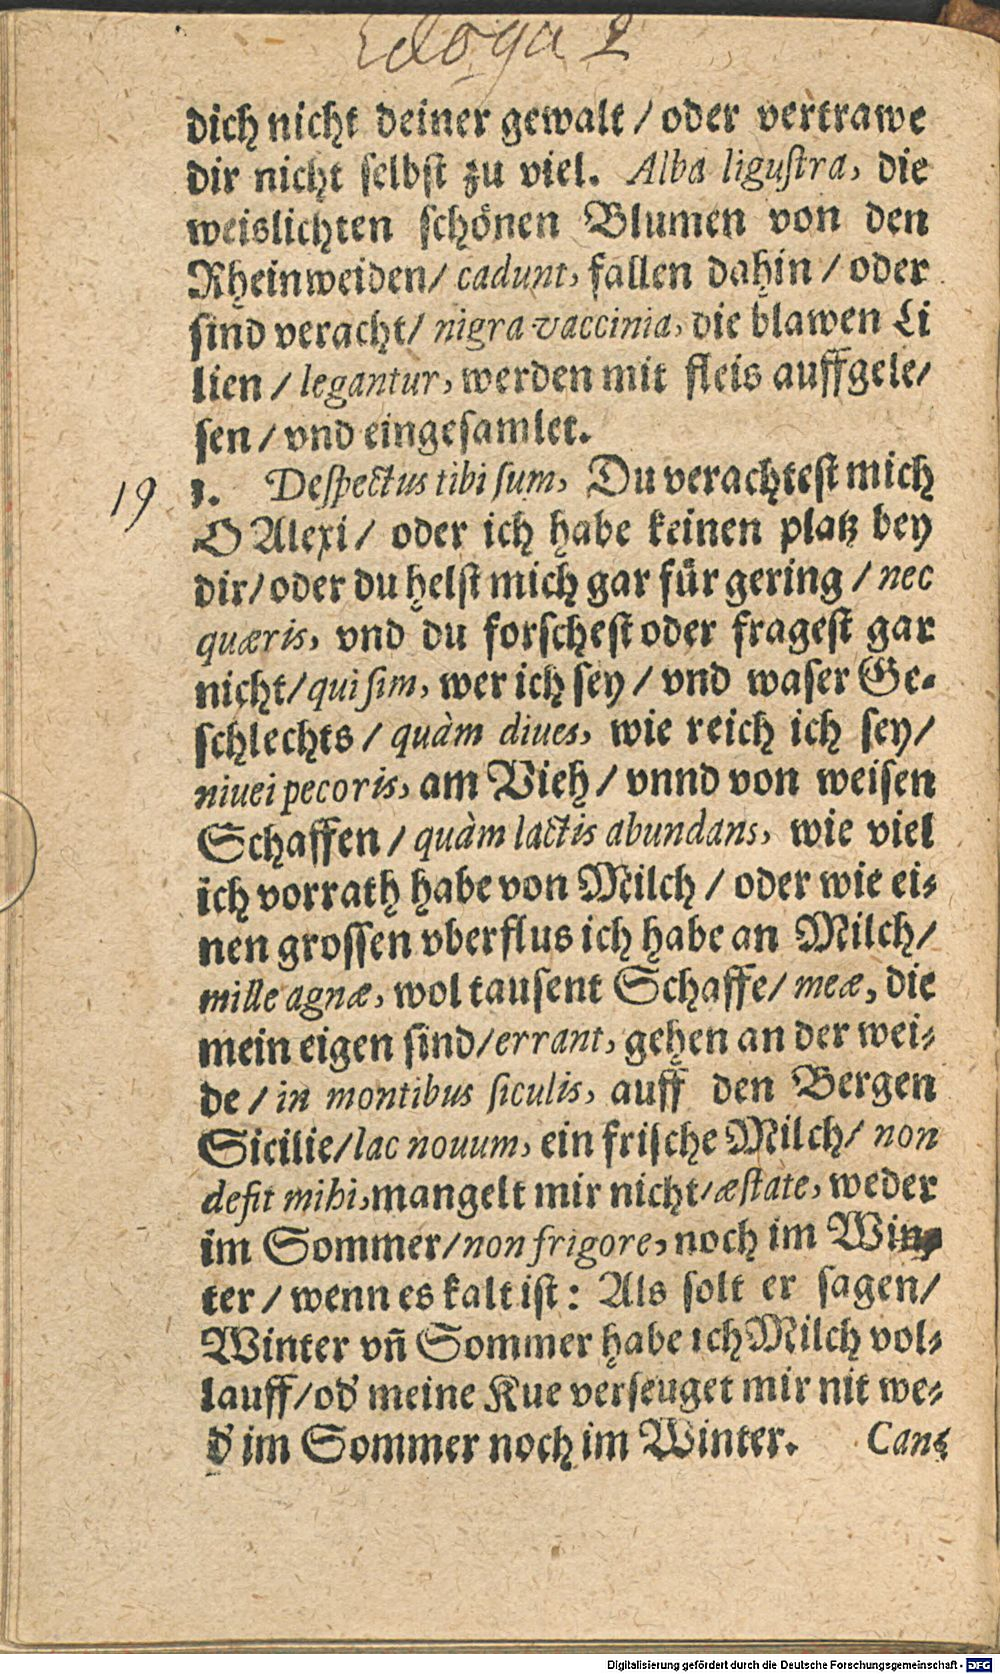 Ecloga 2
dich nicht deiner gewalt / oder vertrawe
dir nicht selbst zu viel. Alba ligustra, die
weislichten schönen Blumen von den
Rheinweiden / cadunt, fallen dahin / oder
sind veracht / nigra vaccinia, die blawen Li
lien / legantur, werden mit fleis auffgele/
sen / vnd eingesamlet.
19 1. Despectus tibi sum, Du verachtest mich
O Alexi / oder ich habe keinen platz bey
dir / oder du helst mich gar für gering / nec
quæris, vnd du forschest oder fragest gar
nicht / qui sim, wer ich sey / vnd waser Ge-
schlechts / quàm diues, wie reich ich sey /
niuei pecoris, am Vieh / vnnd von weisen
Schaffen / quàm lactis abundans, wie viel
ich vorrath habe von Milch / oder wie ei-
nen grossen vberflus ich habe an Milch /
mille agnæ, wol tausent Schaffe / meæ, die
mein eigen sind / errant, gehen an der wei-
de / in montibus siculis, auff den Bergen
Sicilie / lac nouum, ein frische Milch / non
defit mihi, mangelt mir nicht / æstate, weder
im Sommer / non frigore, noch im Win-
ter / wenn es kalt ist: Als solt er sagen /
Winter vñ Sommer habe ich Milch vol-
lauff / od' meine Kue verseuget mir nit we-
d' im Sommer noch im Winter. Can-
Digitalisierung gefördert durch die Deutsche Forschungsgemeinschaft - DFG